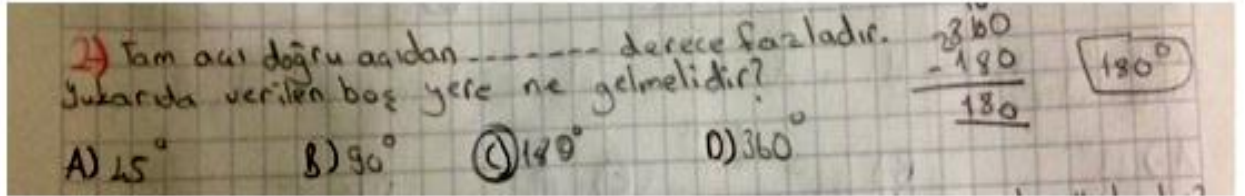 2) Tam açı doğru açıdan ------- derece fazladır.
Yukarıda verilen boş yere ne gelmelidir?
A) 45° B) 90° C) 180° D) 360°
360
- 180
180
180°